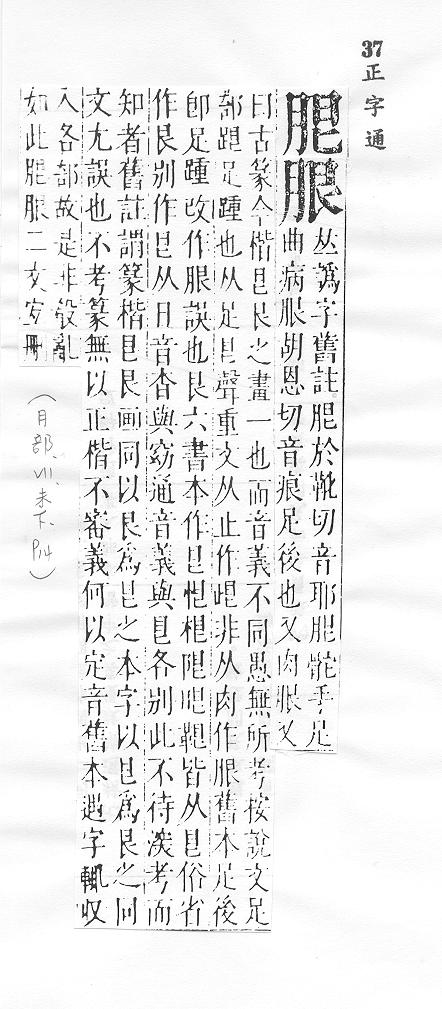 37 正字通
𠀤譌字舊註於靴切音耶手足
曲病胡恩切音痕足後也又肉又
曰古篆今楷皀艮之畫一也而音義不同愚無所考按說文足
部足踵也从足皀聲重文从止作非从肉作舊本足後
卽足踵改作誤也艮六書本作皀皆从皀俗省
作艮別作皀从日音杳與窈通音義與皀各別此不待深考而
知者舊註謂篆楷皀艮画同以艮爲皀之本字以皀爲艮之同
文尤誤也不考篆無以正楷不審義何以定音舊本遇字輒収
入各部故是非殽亂
如此二文宜冊
(月部、未下、P14)